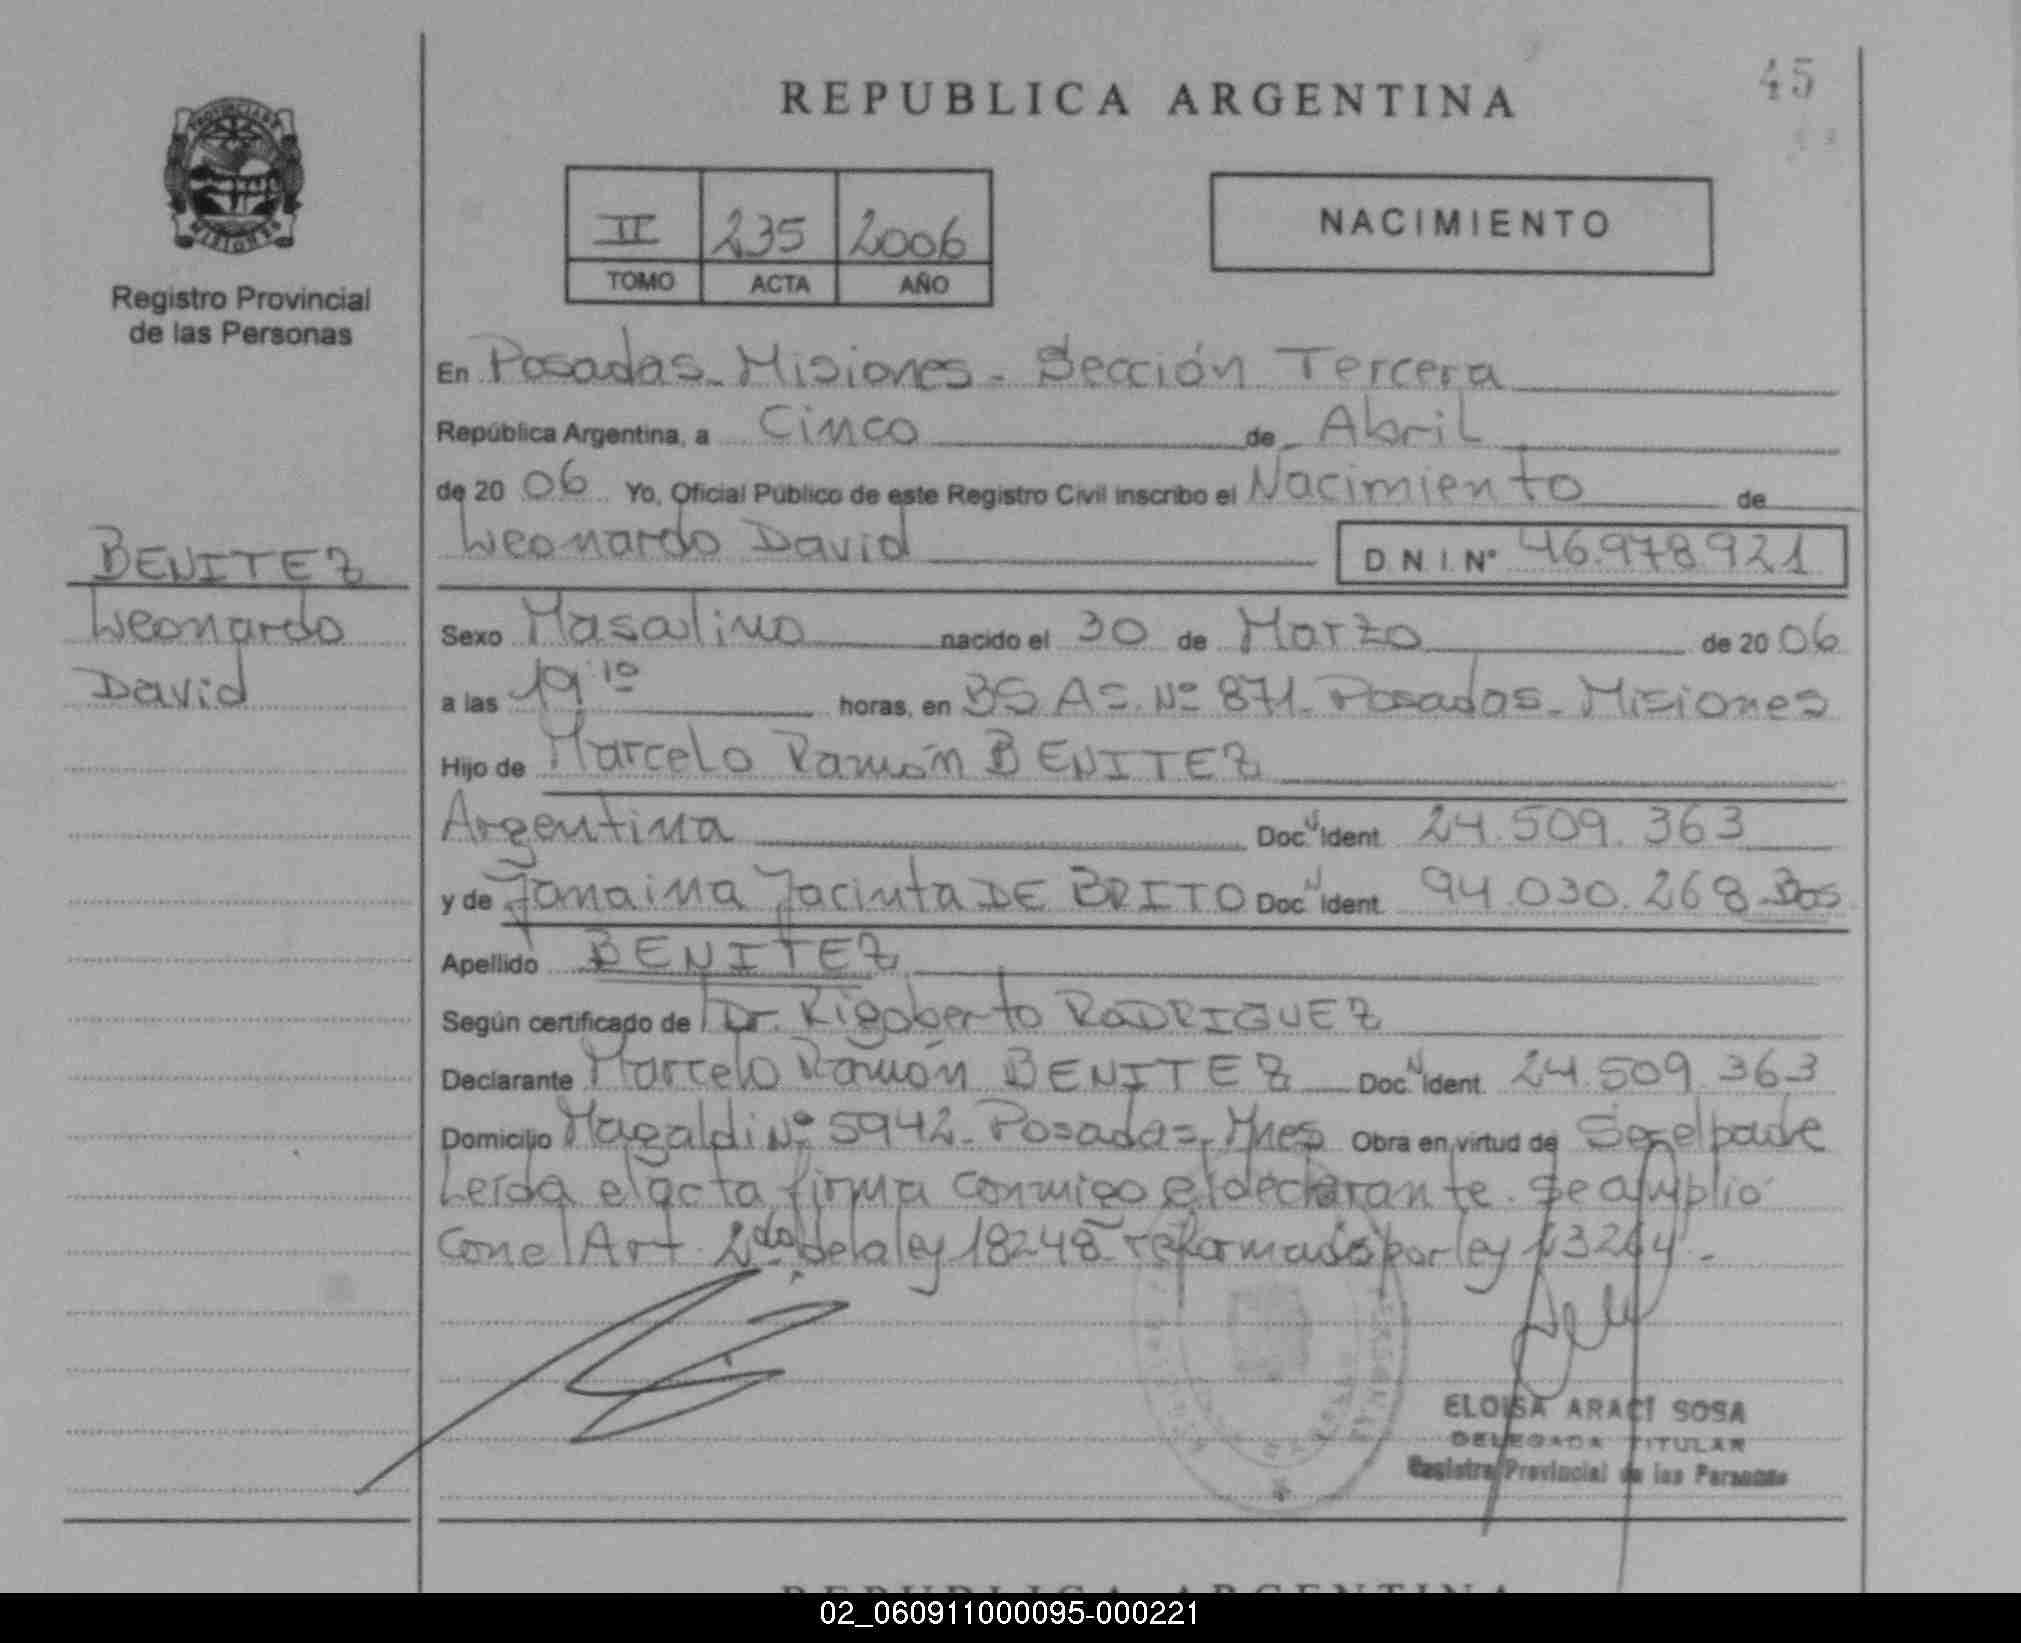 REPUBLICA ARGENTINA
45
PROVINCIA DE MISIONES
Registro Provincial
de las Personas
II 235 2006
TOMO ACTA AÑO
NACIMIENTO
En Posadas - Misiones - Sección Tercera
República Argentina, a Cinco de Abril
de 20 06 Yo, Oficial Público de este Registro Civil inscribo el Nacimiento de
Leonardo David D.N.I. Nº 46.978.921
BENITEZ
Leonardo
David
Sexo Masculino nacido el 30 de Marzo de 20 06
a las 19:10 horas, en BS AS. Nº 871 - Posadas - Misiones
Hijo de Marcelo Ramón BENITEZ
Argentina Doc. N Ident. 24.509.363
y de Janaina Jacinta DE BRITO Doc. N Ident. 94.030.268 Bas
Apellido BENITEZ
Según certificado de Dr. Rigoberto RODRIGUEZ
Declarante Marcelo Ramón BENITEZ Doc. N Ident. 24.509.363
Domicilio Magaldi Nº 5942 - Posadas - Mnes Obra en virtud de Ser el padre
Leída el acta firma conmigo el declarante. Se amplió
Con el Art. 2do de la ley 18248 - reformado por ley 23264 -
ELOISA ARACÍ SOSA
DELEGADA TITULAR
Registro Provincial de las Personas
REPUBLICA ARGENTINA
02_060911000095-000221